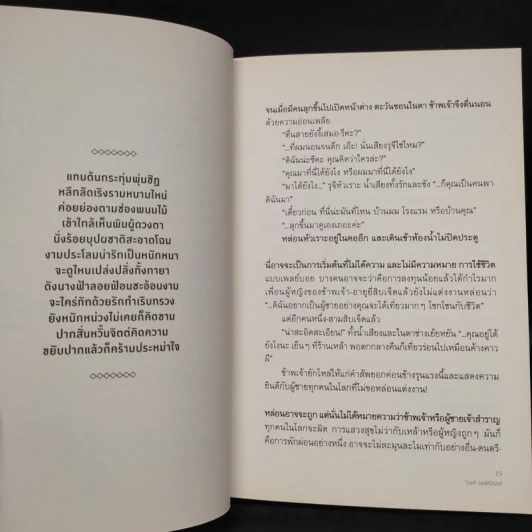 แทบต้นกระทุ่มพุ่มชิฏ
หลีกลัดเริงรามหนามใหน่
ค่อยย่องตามช่องพนมไม้
เข้าใกล้เห็นพิมผู้ดวงตา
นั่งร้อยบุปผชาติสะอาดโฉม
งามประโลมน่ารักเป็นหนักหนา
จะดูไหนเปล่งปลั่งทั้งกายา
ดังนางฟ้าลอยฟ้อนชะอ้อนงาม
จะใคร่ทักด้วยรักกำเริบทรวง
ยังหนักหน่วงไม่เคยก็คิดขาม
ปากสั่นหวั่นจิตต์คิดความ
ขยับปากแล้วก็คร้ามประหม่าใจ
จนเมื่อมีคนลุกขึ้นไปเปิดหน้าต่าง ตะวันชอนในตา ข้าพเจ้าจึงตื่นนอน
ด้วยความอ่อนเพลีย
“ตื่นสายยังงี้เสมอ-รึคะ?”
“..ที่ผมนอนจนดึก เอ๊ะ! นั่นเสียงรุจีใช่ไหม?”
“ดิฉันน่ะซีคะ คุณคิดว่าใครล่ะ?”
“คุณมาที่นี่ได้ยังไง หรือผมมาที่นี่ได้ยังไง”
“มาได้ยังไง...” รุจีหัวเราะ น้ำเสียงทั้งรักและชัง “...ก็คุณเป็นคนพา
ดิฉันมา”
“เดี๋ยวก่อน ที่นี่น่ะมันที่ไหน บ้านผม โรงแรม หรือบ้านคุณ”
“...ลุกขึ้นมาดูเองเถอะค่ะ”
หล่อนหัวเราะอยู่ในคออีก และเดินเข้าห้องน้ำไม่ปิดประตู
นี่อาจจะเป็นการเริ่มต้นที่ไม่ได้ความ และไม่มีความหมาย การใช้ชีวิต
แบบเพลย์บอย บางคนอาจจะว่าคือการลงทุนน้อยแล้วได้กำไรมาก
เพื่อนผู้หญิงของข้าพเจ้า-อายุยี่สิบเจ็ดแล้วยังไม่แต่งงานหล่อนว่า
“ดิฉันอยากเป็นผู้ชายอย่างคุณจะได้เที่ยวมากๆ โชกโชนกับชีวิต”
แต่อีกคนหนึ่ง-สามสิบเจ็ดแล้ว
“น่าสะอิดสะเอียน!” ทั้งน้ำเสียงและในตาช่างเย้ยหยัน “...คุณอยู่ได้
ยังไงนะ เย็นๆ ที่ร้านเหล้า พอตกกลางคืนก็เที่ยวร่อนไปเหมือนค้างคาว
ผี”
ข้าพเจ้ายักไหล่ให้แก่คำสัพยอกค่อนข้างรุนแรงนี้และแสดงความ
ยินดีกับผู้ชายทุกคนในโลกที่ไม่ขอหล่อนแต่งงาน!
หล่อนอาจจะถูก แต่นั่นไม่ได้หมายความว่าข้าพเจ้าหรือผู้ชายเจ้าสำราญ
ทุกคนในโลกจะผิด การแสวงสุขไม่ว่ากับเหล้าหรือผู้หญิงถูกๆ มันก็
คือการพักผ่อนอย่างหนึ่ง อาจจะไม่ละมุนละไมเท่ากับอย่างอื่น-ดนตรี-
15
'รงค์ วงษ์สวรรค์